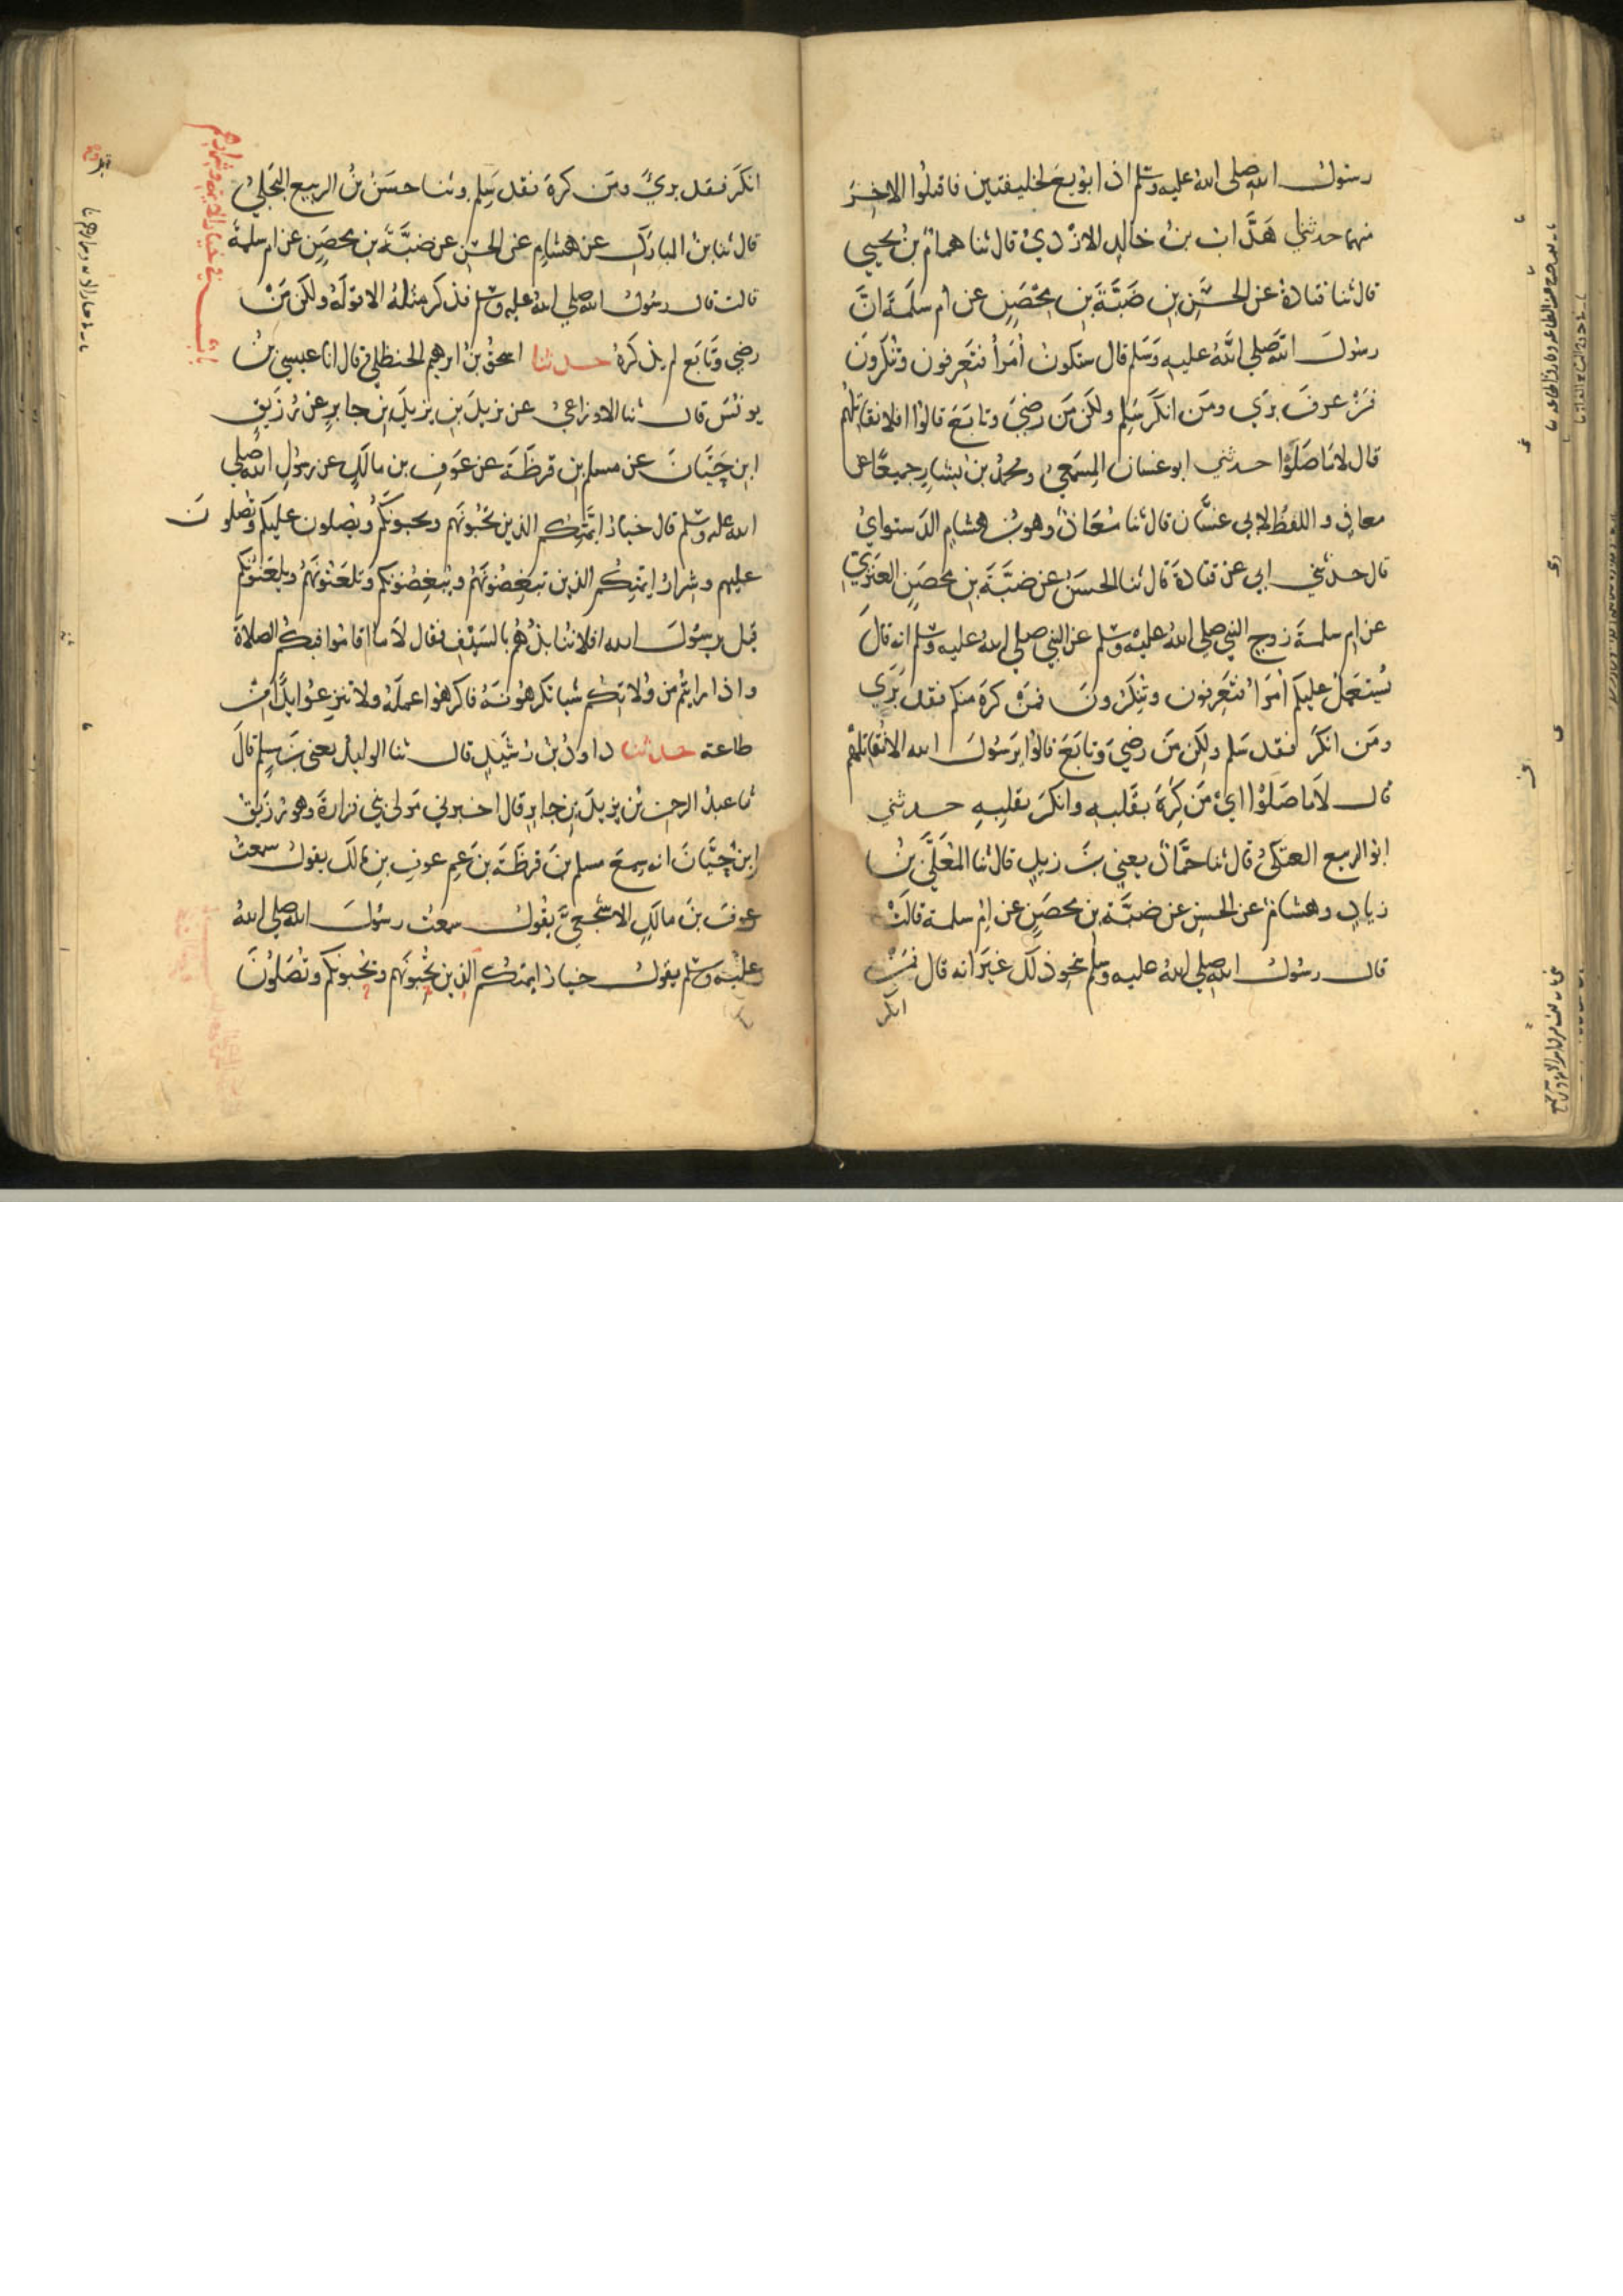 رسول الله صلى الله عليه وسلم اذا بويع لخليفتين فاقتلوا الاخر
منهما حدثني هداب بن خالد الازدي قال ثنا همام بن يحيى
قال ثنا قتادة عن الحسن بن ضبة بن محصن عن ام سلمة ان
رسول الله صلى الله عليه وسلم قال ستكون امرأ فتعرفون وتنكرون
فمن عرف بري ومن انكر سلم ولكن من رضي وتابع قالوا افلا نقاتلهم
قال لا ما صلوا حدثني ابو غسان المسمعي ومحمد بن بشار جميعا عن
معاذ واللفظ لابي غسان قال ثنا معاذ وهو بن هشام الدستوايي
قال حدثني ابي عن قتادة قال ثنا الحسن عن ضبة بن محصن العنزي
عن ام سلمة زوج النبي صلى الله عليه وسلم عن النبي صلى الله عليه وسلم انه قال
يستعمل عليكم امرا فتعرفون وتنكرون فمن كره منكم فقد بري
ومن انكر فقد سلم ولكن من رضي وتابع قالوا يرسول الله الا نقاتلهم
قال لا ما صلوا اي من كره بقلبه وانكر بقلبه حدثني
ابو الربيع العتكي قال ثنا حماد يعني بن زيد قال ثنا المعلى بن
زياد وهشام عن الحسن عن ضبة بن محصن عن ام سلمة قالت
قال رسول الله صلى الله عليه وسلم نحو ذلك غير انه قال فمن
انكر
انكر فقد بري ومن كره فقد سلم وثنا حسن بن الربيع البجلي
قال ثنا بن المبارك عن هشام عن الحسن عن ضبة بن محصن عن ام سلمة
قالت قال رسول الله صلى الله عليه وسلم فذكر مثله الا قوله ولكن من
رضي وتابع لم يذكره حدثنا اسحق بن ابرهيم الحنظلي قال انا عيسى بن
يونس قال ثنا الاوزاعي عن يزيد بن يزيد بن جابر عن رزيق
ابن حيان عن مسلم بن قرظة عن عوف بن مالك عن رسول الله صلى
الله عليه وسلم قال خيار ائمتكم الذين تحبونهم ويحبونكم ويصلون عليكم وتصلون
عليهم وشرار ائمتكم الذين تبغضونهم ويبغضونكم وتلعنونهم ويلعنونكم
قيل يرسول الله افلا ننابذهم بالسيف فقال لا ما اقاموا فيكم الصلاة
واذا رايتم من ولاتكم شيا تكرهونه فاكرهوا عمله ولا تنزعوا يدا من
طاعته حدثنا داود بن رشيد قال ثنا الوليد يعني بن مسلم قال
ثنا عبد الرحمن بن يزيد بن جابر قال اخبرني مولى بني فزارة وهو رزيق
ابن حيان انه سمع مسلم بن قرظة بن عم عوف بن مالك يقول سمعت
عوف بن مالك الاشجعي يقول سمعت رسول الله صلى الله
عليه وسلم يقول خيار ايمتكم الذين تحبونهم ويحبونكم وتصلون